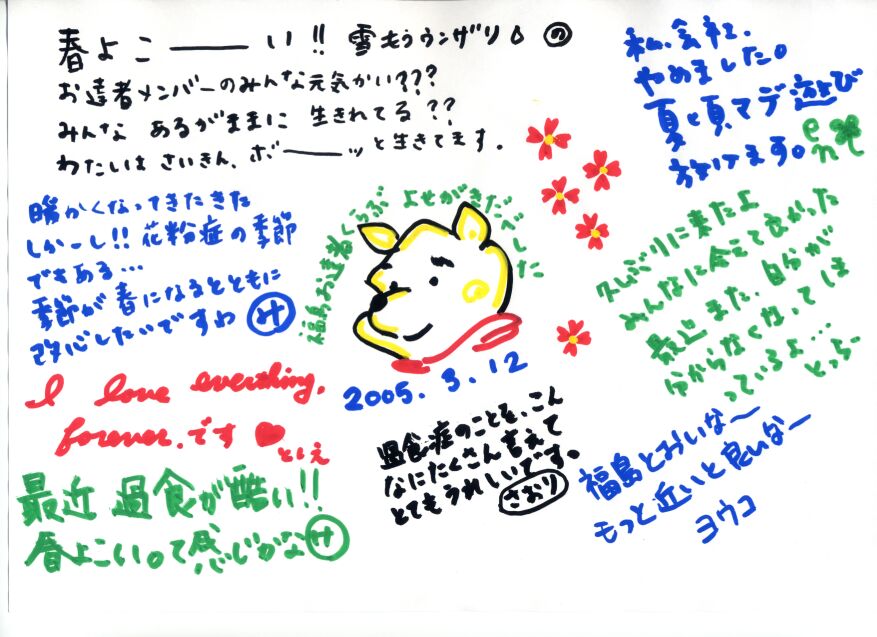 春よこーーーい!! 雪もうウンザリ♪ の
お達者メンバーのみんな元気かい???
みんな あるがままに 生きれてる??
わたしは さいきん、ボーーッと生きてます。
私、会社、
やめました。
夏頃マデ遊び
続けます。
暖かくなってきたきた
しかーし!! 花粉症の季節
である…
季節が春になるとともに
改心したいですわ サ
福島お達者くらぶ よせがきだべした
2005.3.12
久しぶりに来たよ
みんなに会えて良かった
最近また、自分が
分からなくなってしま
っているよ… とっちー
I love everthing,
forever.です♥
ともえ
過食症のことを、こん
なにたくさん言えて
とてもうれしいです。
さおり
福島とおいな〜
もっと近いと良いなー
ヨウコ
最近 過食が酷い!!
春よこいって感じかな サ